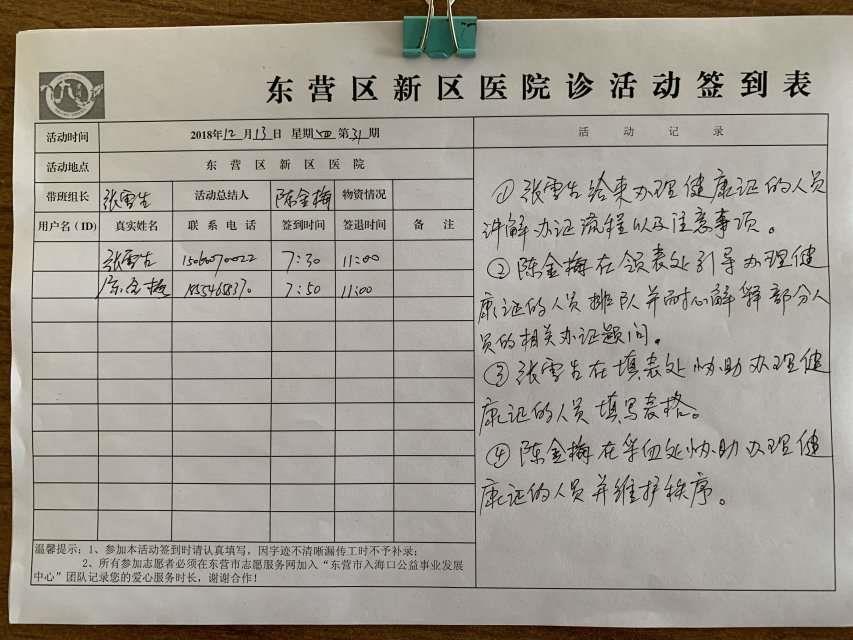 东营区新区医院诊活动签到表
活动时间 2018年12月13日 星期四 第31期 活动记录
活动地点 东营区新区医院
带班组长 张雪生 活动总结人 陈金梅 物资情况
用户名(ID) 真实姓名 联系电话 签到时间 签退时间 备注
张雪生 7:30 11:00
陈金梅 7:50 11:00
①张雪生给来办理健康证的人员
讲解办证流程以及注意事项。
②陈金梅在领表处引导办理健
康证的人员排队并耐心解释部分人
员的相关办证题问。
③张雪生在填表处协助办理健
康证的人员填写表格。
④陈金梅在等血处协助办理健
康证的人员并维护秩序。
温馨提示:1、参加本活动签到时请认真填写,因字迹不清晰漏传工时不予补录;
2、所有参加志愿者必须在东营市志愿服务网加入“东营市入海口公益事业发展
中心”团队记录您的爱心服务时长,谢谢合作!